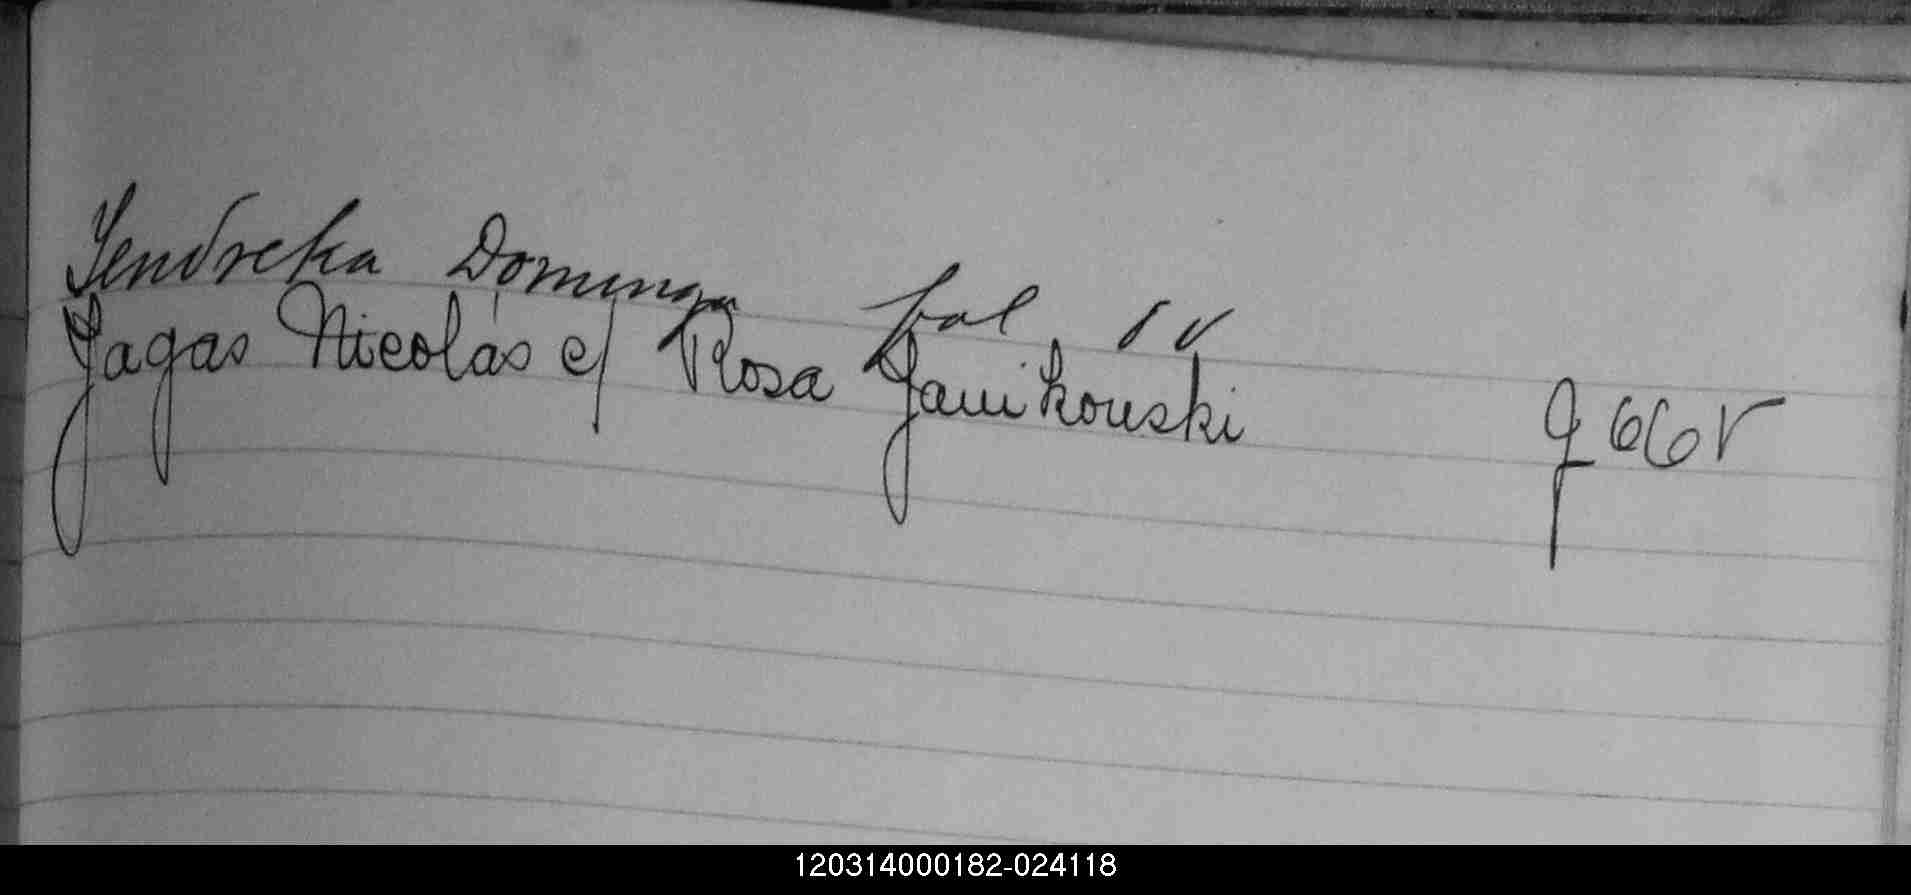 Yendreka Dominga fol 1 v
Jagas Nicolás c/ Rosa Janikouski f 66 v
120314000182-024118